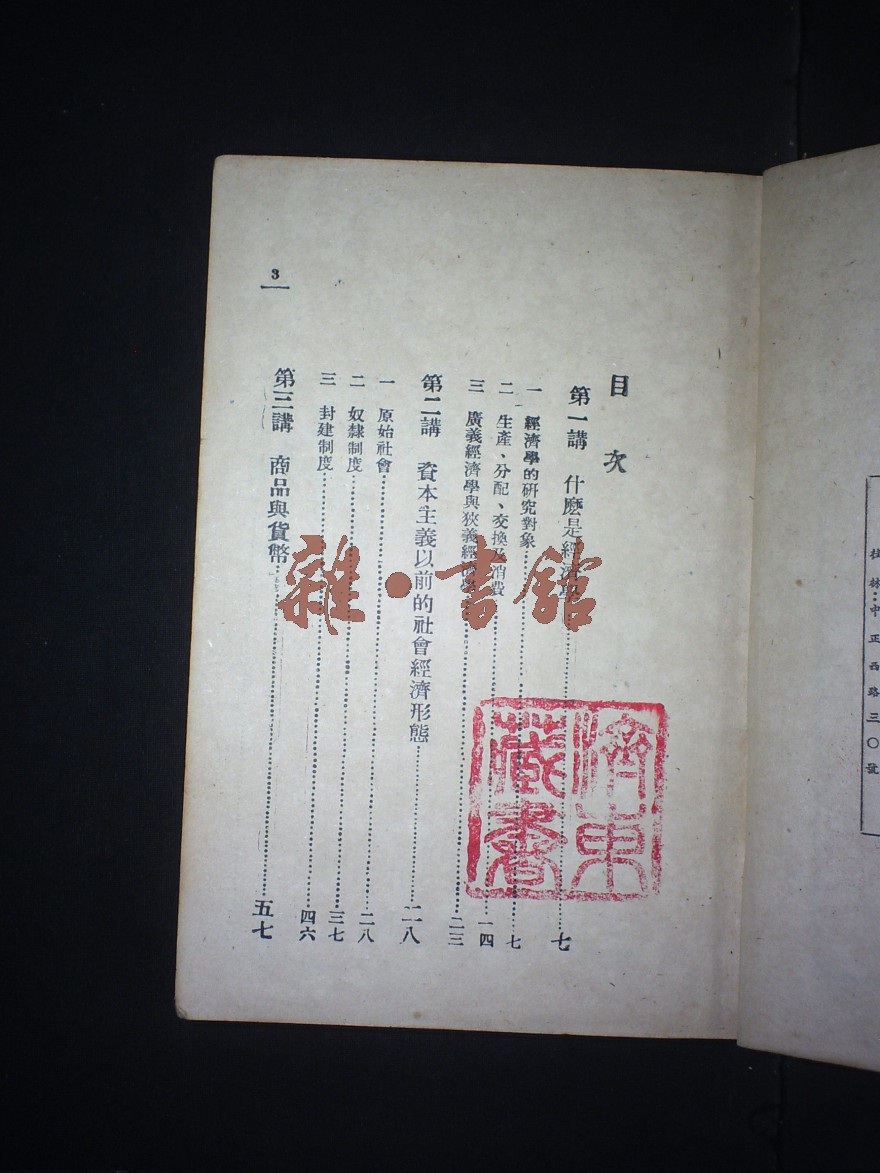 桂林：中正西路三〇號
目次
第一講 什麼是經濟學……七
一 經濟學的研究對象……七
二 生產、分配、交換及消費……一四
三 廣義經濟學與狹義經濟學……二三
第二講 資本主義以前的社會經濟形態……二八
一 原始社會……二八
二 奴隸制度……三七
三 封建制度……四六
第三講 商品與貨幣……五七
3
雜·書館
濟東藏書